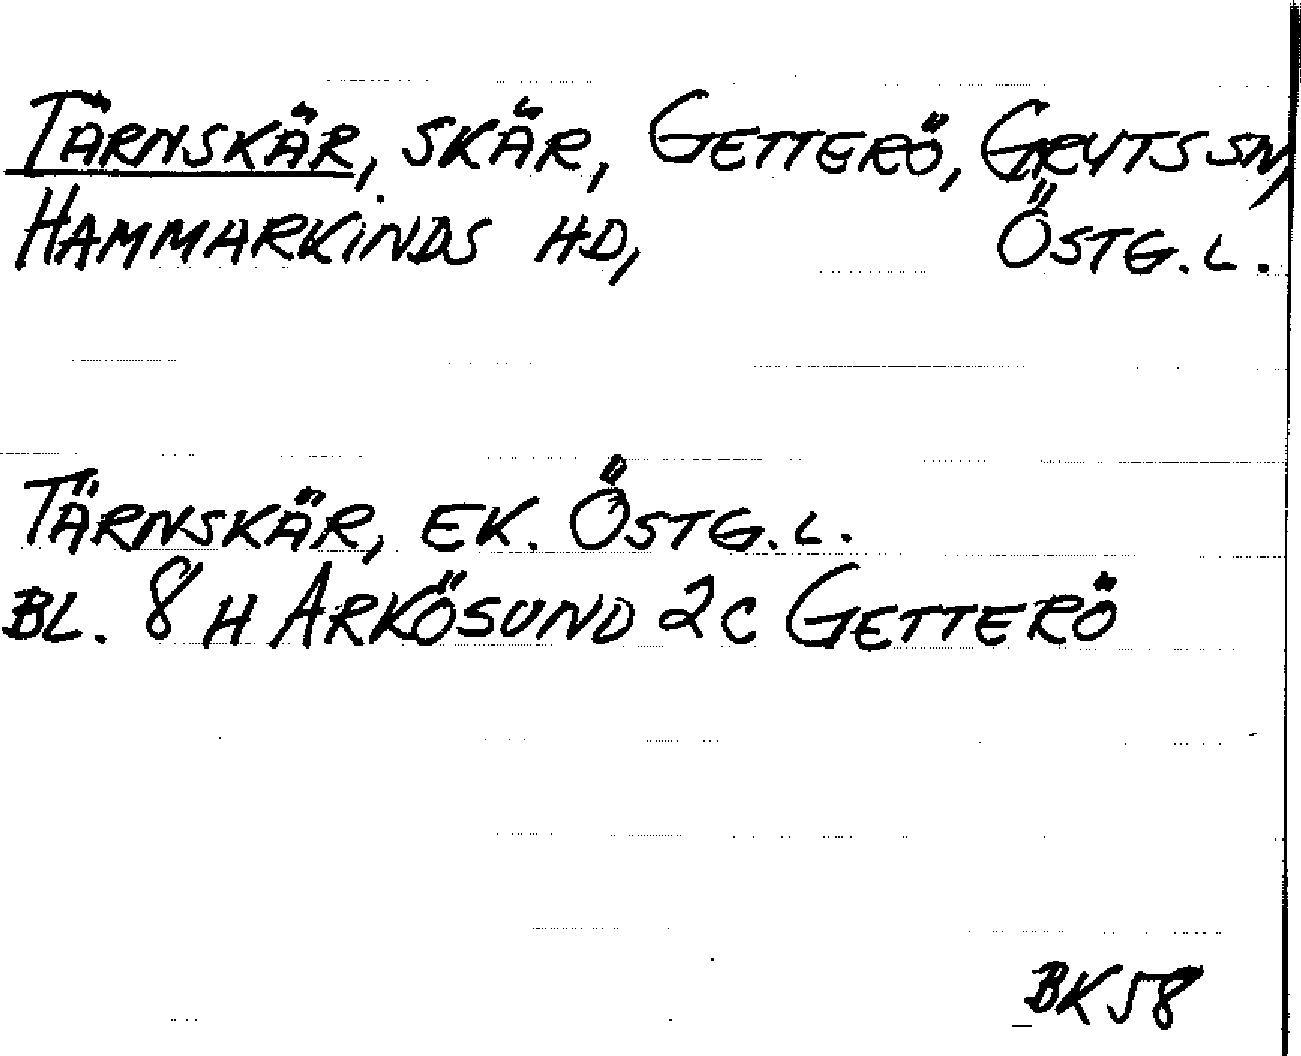 TÄRNSKÄR, SKÄR, GETTERÖ, GRYTS SN,
HAMMARKINDS HD, ÖSTG. L.
TÄRNSKÄR, EK. ÖSTG. L.
BL. 8 H ARKÖSUND 2C GETTERÖ
BK58